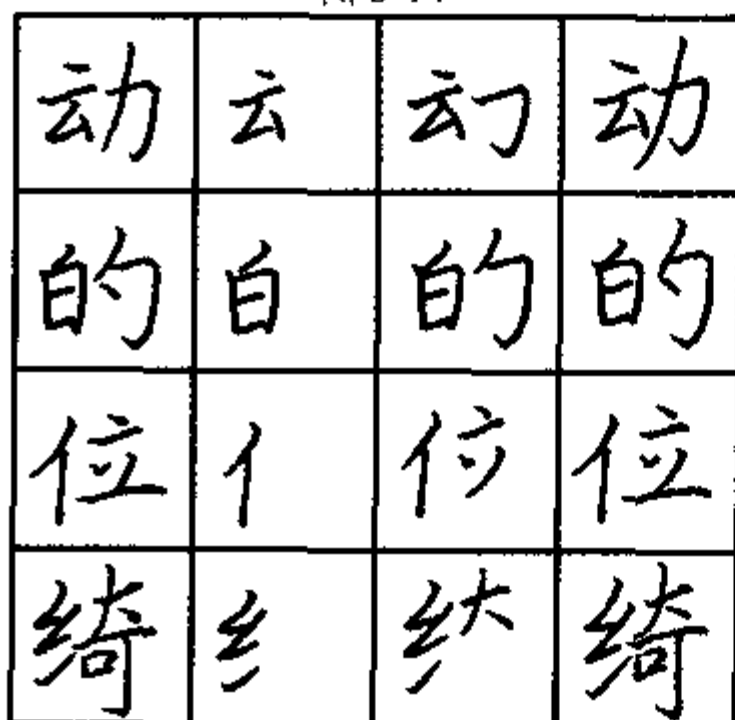 动 云 动
的 白 的 的
位 亻 位
绮 纟 绮